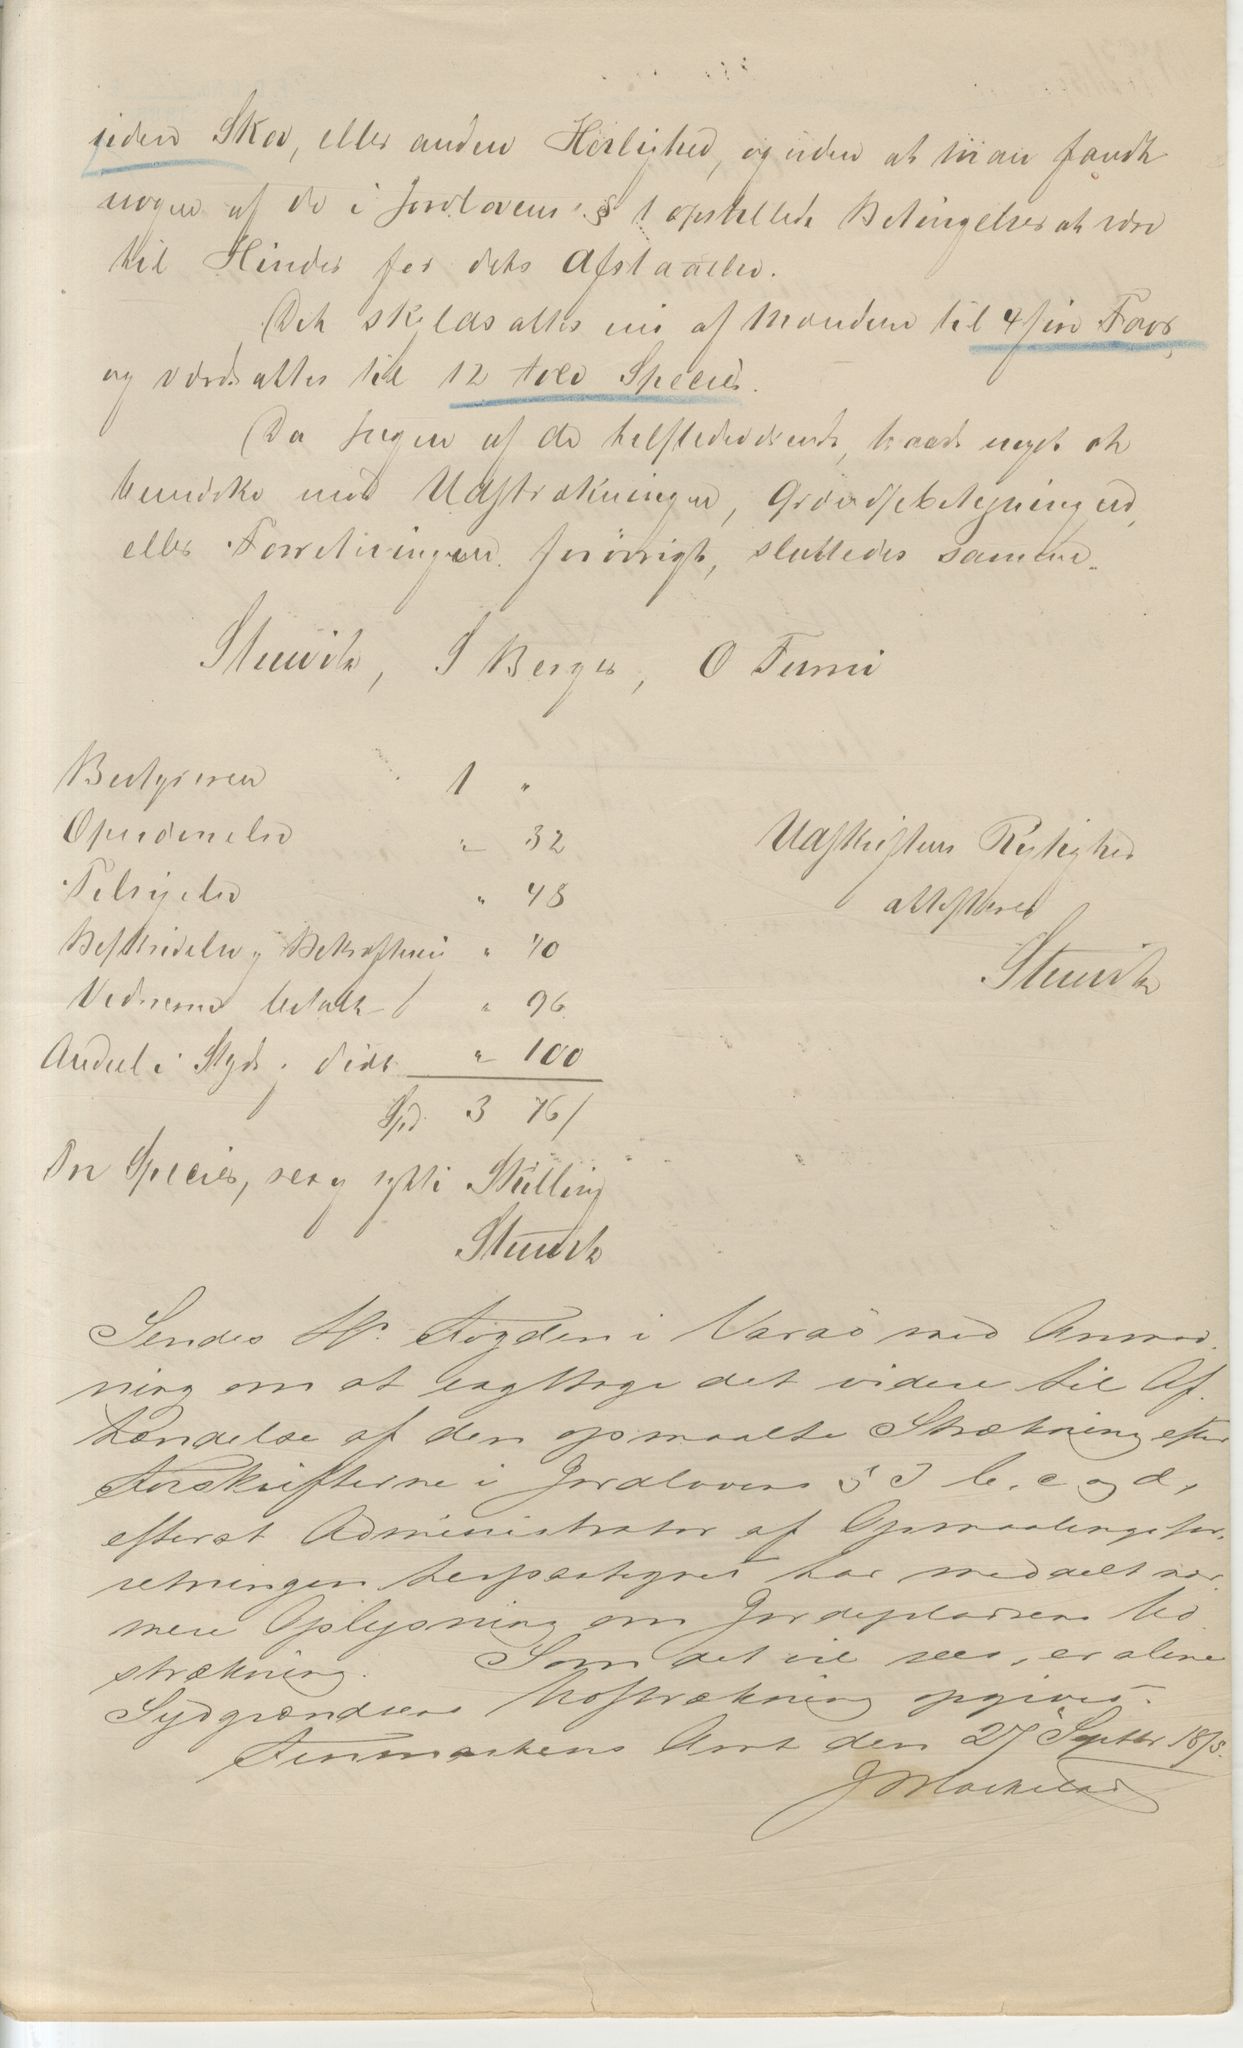 uden Skov, eller anden Herlighed, og uden at man fandt
nogen af de i Jordlovens § 1 opstillede Betingelser at være
til Hinder for dets Afstaaelse.
Det skyldsattes nu af Mændene til 4 fire Favs
og værdsattes til 12 tolv Species.
Da Ingen af de tilstedeværende havde noget at
bemærke ved Udstrækningen, Grændsebetegningen,
eller Forretningen forøvrigt, sluttedes samme.
Stuwitz, S Berger, O Turmi
Bestyreren 1 "
" 32
Tilsigelse " 48
Beskrivelse og Bekræftelse " 70
Vidnerne betalt " 96
Andeel i Skyds " 100
Spd. 3 76
Tre Species, sex og sytti Skilling
Stuwitz
Udskriftens Rigtighed
attesterer
Stuwitz
Sendes Hr. Fogden i Vadsø med Anmod-
ning om at iagttage det videre til Af-
hændelse af den opmaalte Strækning efter
Forskrifterne i Jordlovens § 3 b, c og d,
efterat Administrator af Opmaalingsfor-
retningen har meddelt nær-
mere Oplysning om Jordepladsens Ud-
strækning. Som det vil sees, er alene
Sydgrændsens Udstrækning opgivet.
Finmarkens Amt den 27 Septbr 1873.